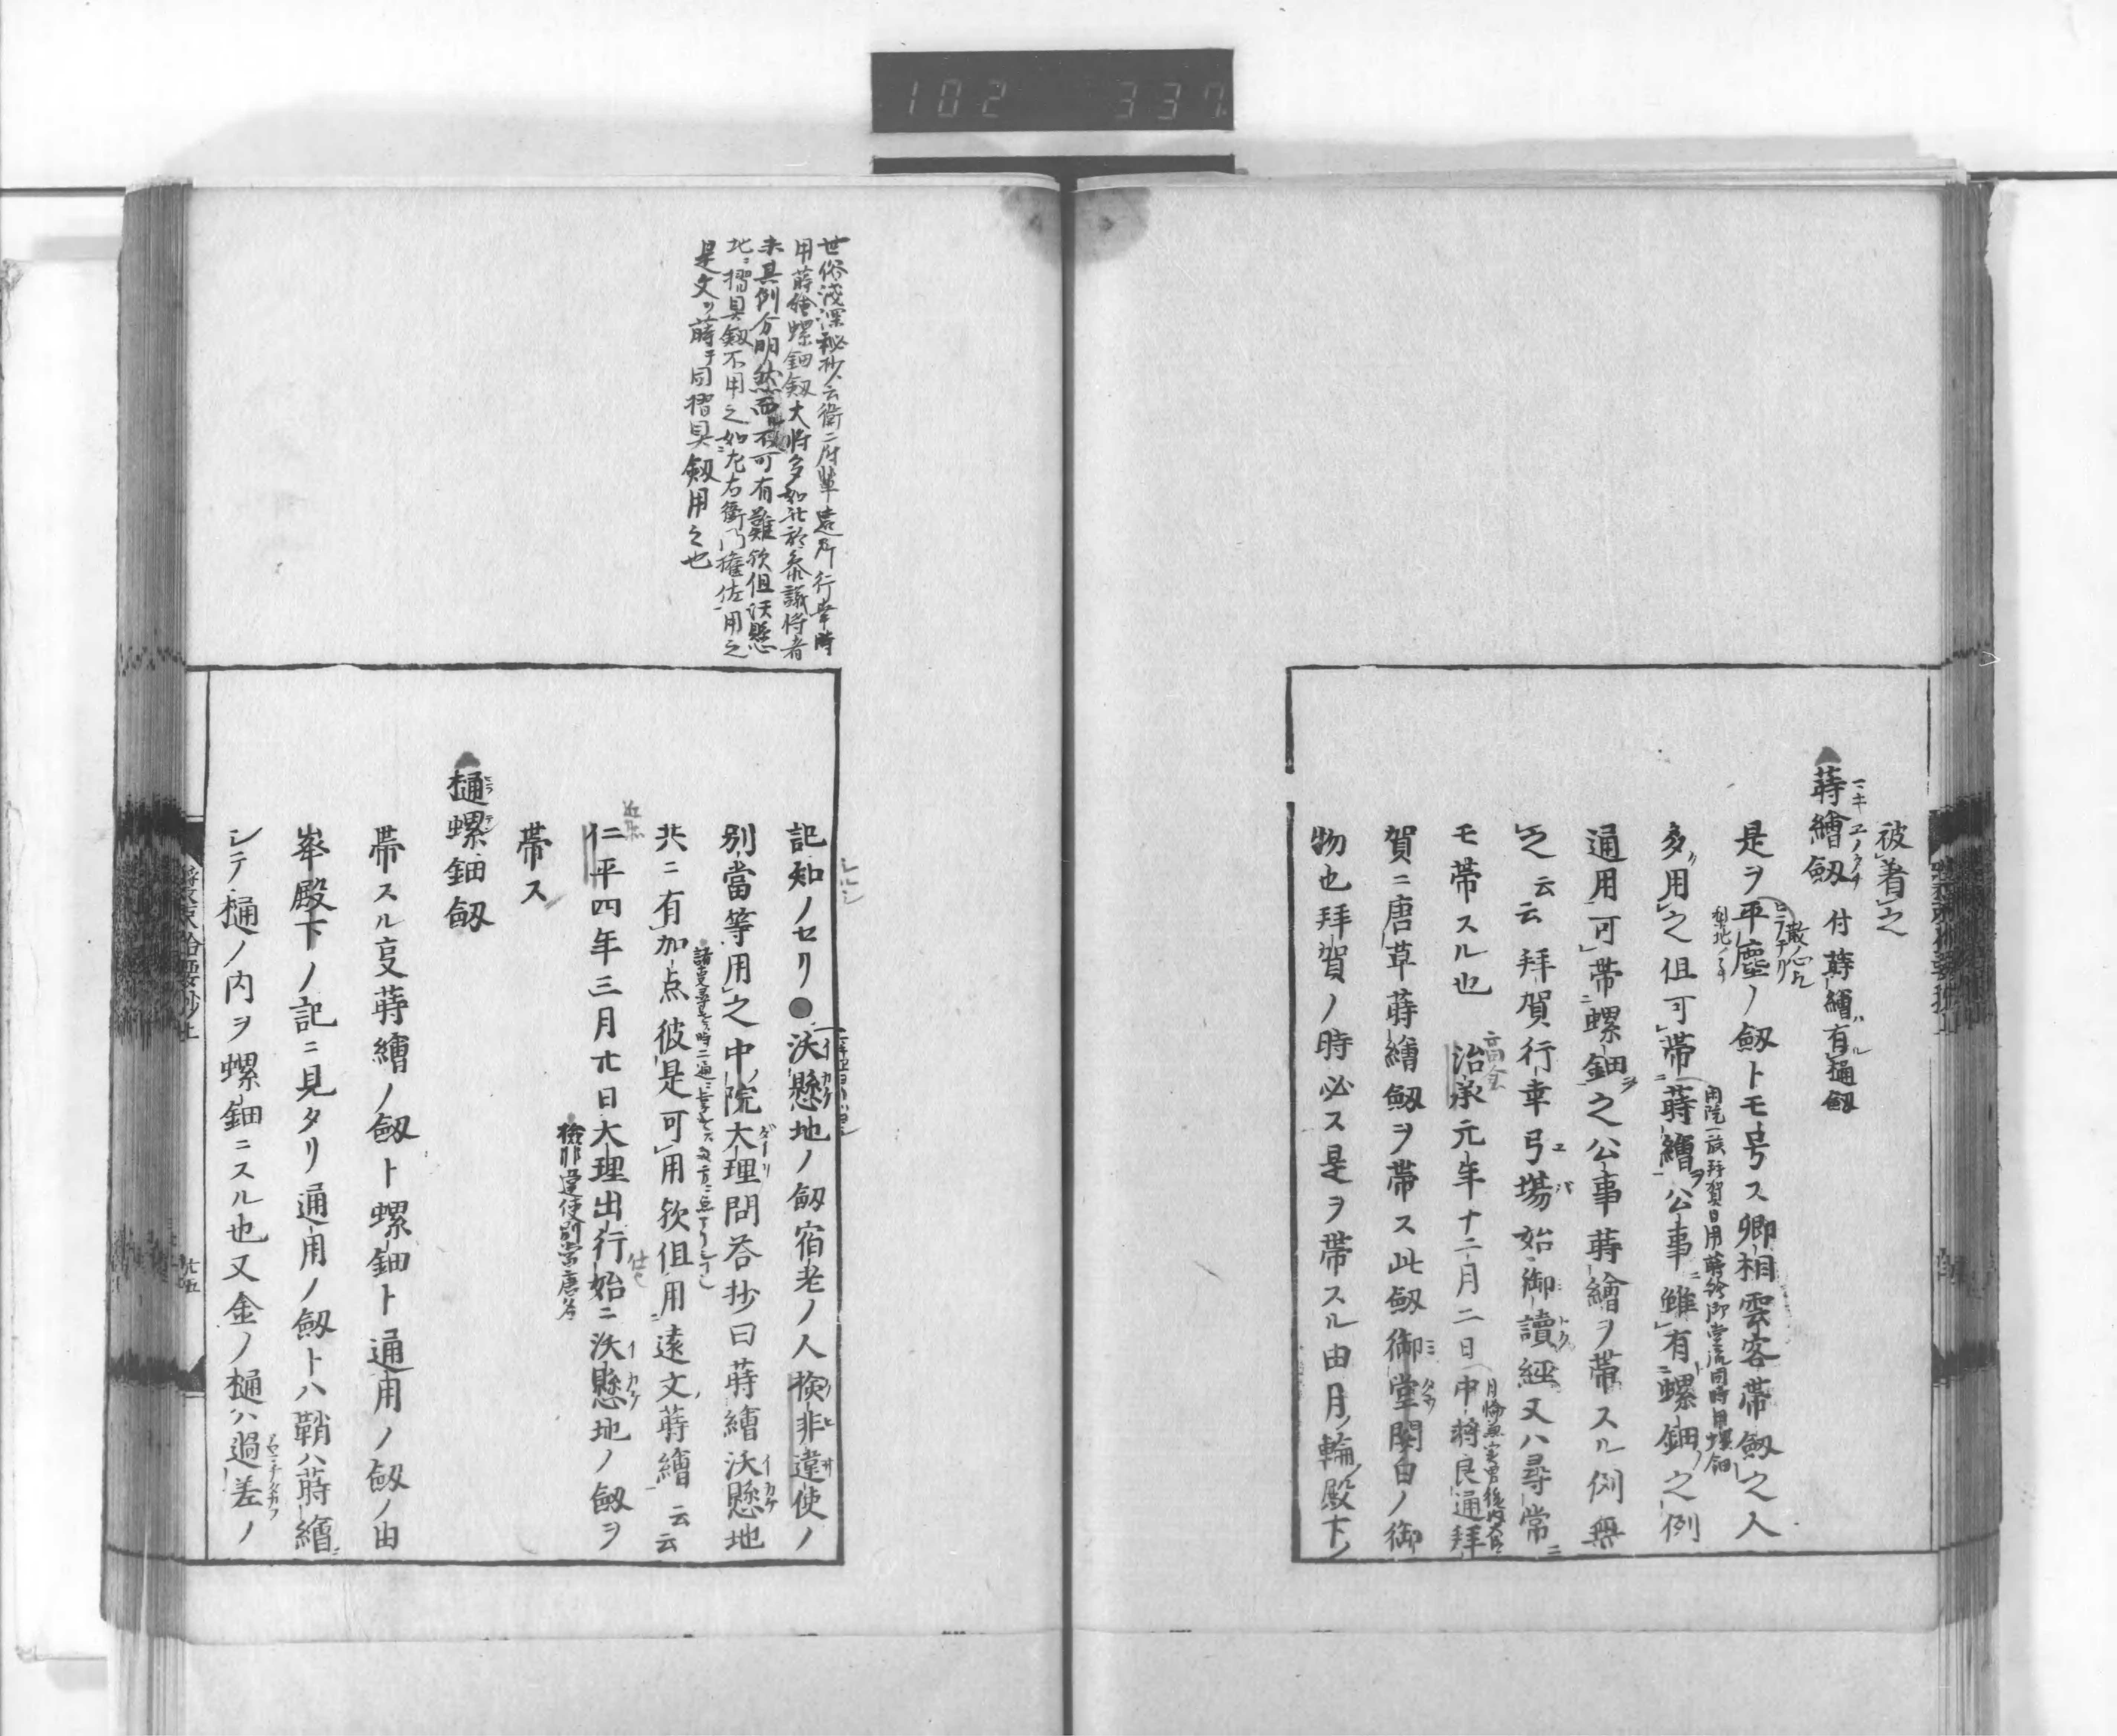 102 337
被著之
蒔繪劔 付蒔繪有樋劔
マキエノタチ
是ヲ平塵ノ劔トモ号ス卿相雲客帯劔之人
多用之但可帯蒔繪公事雖有螺鈿之例
閑院一族拝賀日用蒔繪御堂流同時用螺鈿
通用可帯螺鈿之公事蒔繪ヲ帯スル例無
乏云云拝賀行幸弓場始御讀經又ハ尋常ニ
モ帯スル也 治承元年十二月二日中將良通拝
賀ニ唐草蒔繪劔ヲ帯ス此劔御堂関白ノ御
物也拝賀ノ時必ス是ヲ帯スル由月輪殿下ノ
世俗淺深秘抄云衛二府輩遠所行幸時
用蒔繪螺鈿劔大將多如此於参議將者
未其例分明然而不可有難欤但沃懸
地摺貝劔不用之如左右衛門権佐用之
是文ヲ蒔テ同摺貝劔用之也
記知ノセリ●沃懸地ノ劔宿老ノ人檢非違使ノ
別當等用之中院大理問荅抄曰蒔繪沃懸地
共ニ有加点彼是可用欤但用遠文蒔繪云云
仁平四年三月廿日大理出行始ニ沃懸地ノ劔ヲ
檢非違使別當唐名
帯ス
樋螺鈿劔
帯スル亘蒔繪ノ劔ト螺鈿ト通用ノ劔ノ由
峯殿下ノ記ニ見タリ通用ノ劔トハ鞘ハ蒔繪ニ
シテ樋ノ内ヲ螺鈿ニスル也又金ノ樋ハ過差ノ
廿五